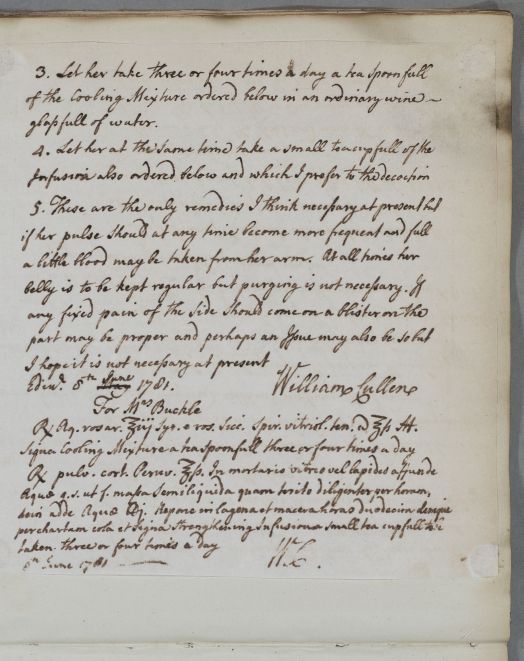 3. Let her take three or four times a day a tea spoonfull
of the Cooling Mixture ordered below in an ordinary wine
glassfull of water.
4. Let her at the same time take a small teacupfull of the
Infusion also ordered below and which I prefer to the decoction
5. These are the only remedies I think necessary at present but
if her pulse should at any time become more frequent and full
a little blood may be taken from her arm. At all times her
belly is to be kept regular but purging is not necessary. If
any fixed pain of the side should come on a blister on the
part may be proper and perhaps an Issue may also be so but
I hope it is not necessary at present
Edinr. 8th June 1781. William Cullen
For Mrs Buckle
℞ Aq. rosar. ℥iij Syr. e ros. sicc. Spir. vitriol. ten. a ℥ß M.
Signa Cooling Mixture a teaspoonfull three or four times a day
℞ pulv. cort. Peruv. ℥ß. In mortario vitreo vel lapideo affunde
Aquæ q.s. ut f. massa Semiliquida quam terito diligenter per horam,
dein adde Aquæ ℔j. Repone in lagena et macera horas duodecim denique
per chartam cola et Signa Strengthening Infusion a small tea cupfull to be
taken three or four times a day
8th June 1781 W.C.